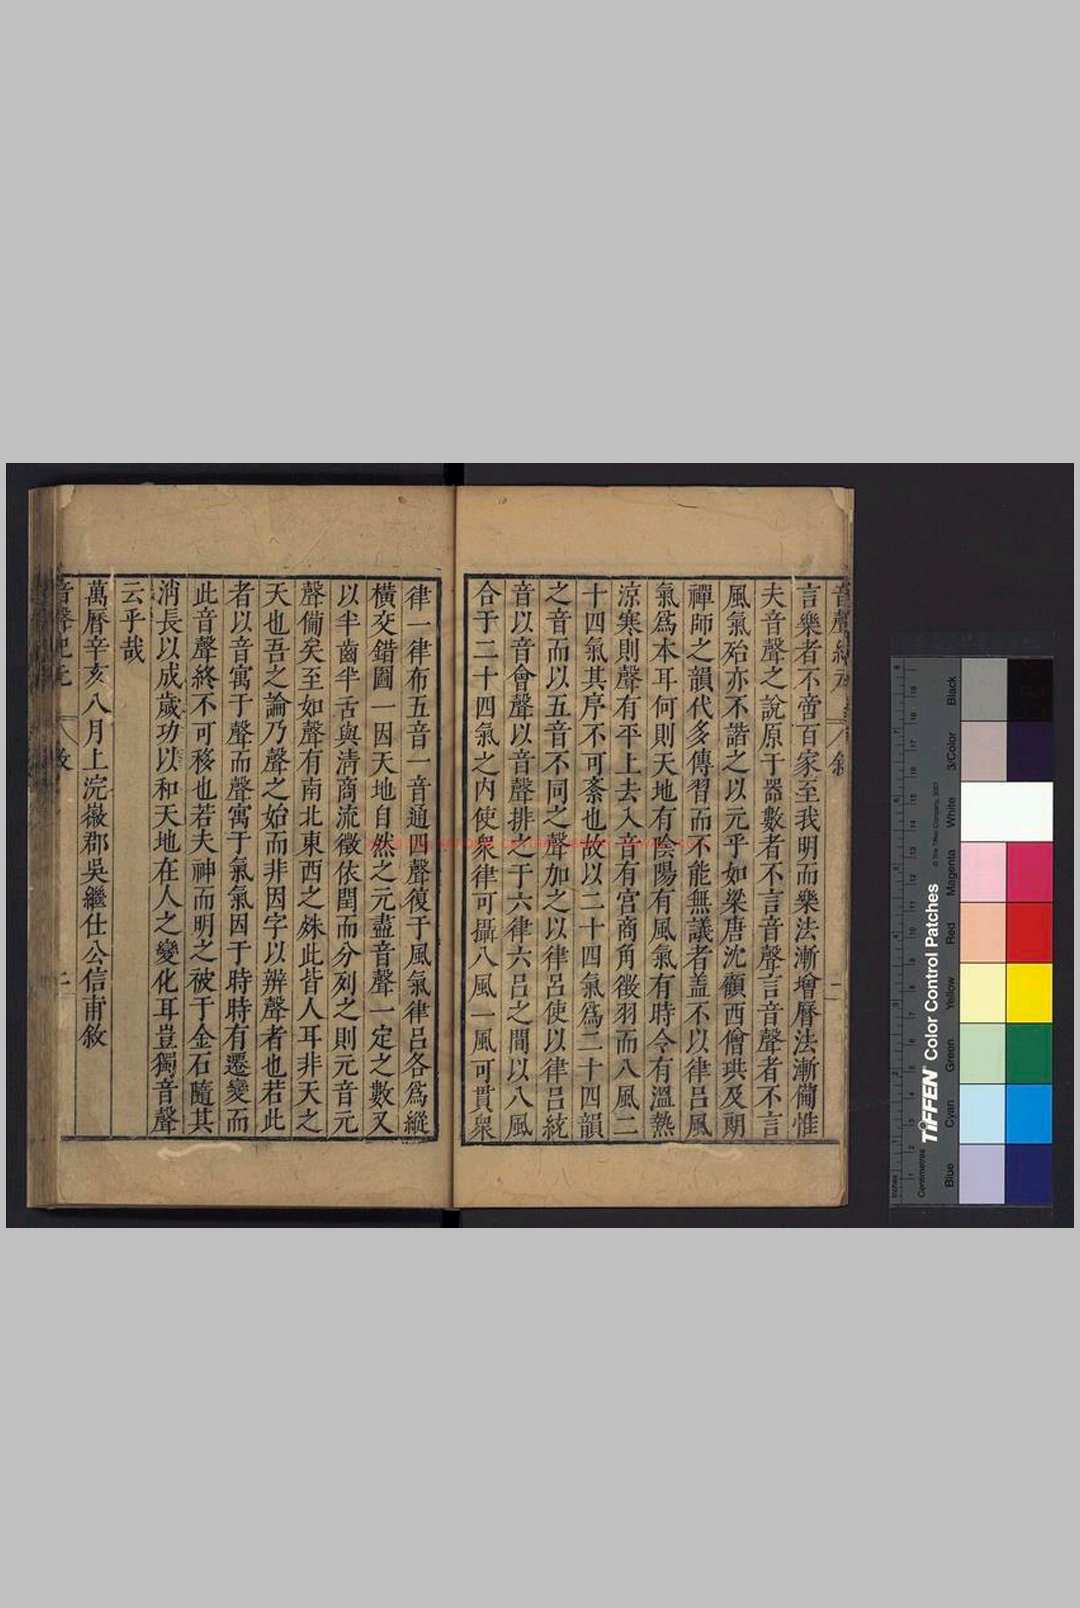 言樂者不啻百家至我明而樂法漸增曆法漸備惟
夫音聲之說原于器數者不言音聲言音聲者不言
風氣殆亦不諧之以元乎如梁唐沈顧西僧珙及朗
禪師之韻代多傳習而不能無議者盖不以律呂風
氣爲本耳何則天地有陰陽有風氣有時令有溫熱
涼寒則聲有平上去入音有宫商角徵羽而八風二
十四氣其序不可紊也故以二十四氣爲二十四韻
之音而以五音不同之聲加之以律呂使以律呂統
音以音會聲以音聲排之于六律六呂之間以八風
合于二十四氣之内使衆律可攝八風一風可貫衆
律一律布五音一音通四聲復于風氣律呂各爲縱
橫交錯圖一因天地自然之元盡音聲一定之數又
以半齒半舌與清商流徵依閏而分列之則元音元
聲備矣至如聲有南北東西之殊此皆人耳非天之
天也吾之論乃聲之始而非因字以辨聲者也若此
者以音寓于聲而聲寓于氣氣因于時時有遷變而
此音聲終不可移也若夫神而明之被于金石隨其
消長以成歲功以和天地在人之變化耳豈獨音聲
云乎哉
萬曆辛亥八月上浣嶶郡吳繼仕公信甫敘
音聲紀元
二
Black
3/Color
White
Magenta
Red
Yellow
Green
Cyan
Blue
TIFFEN Color Control Patches
© The Tiffen Company, 2007
Centimetres
Inches